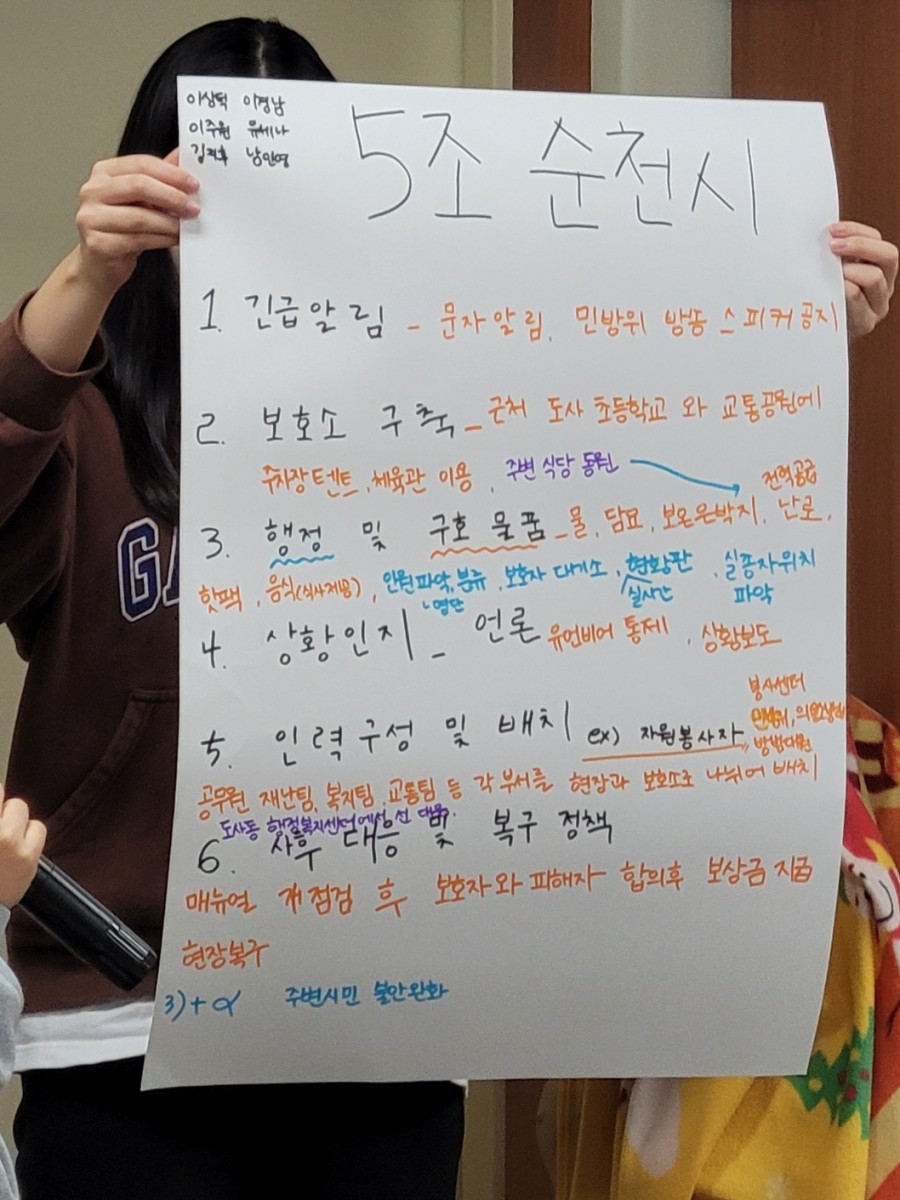 이상덕 이경남
이주원 유세나
김지후 남인영
5조 순천시
1. 긴급알림 - 문자알림, 민방위 방송 스피커 공지
2. 보호소 구축 - 근처 도사 초등학교 와 교통공원에
주차장 텐트, 체육관 이용, 주변 식당 동원
전력공급
3. 행정 및 구호 물품 - 물, 담요, 보온은박지, 난로,
핫팩, 음식(식사제공), 인원파악, 분류, 보호자 대기소, 현황판, 실종자위치
명단 실시간 파악
4. 상황인지 - 언론 유언비어 통제, 상황보도
봉사센터
5. 인력구성 및 배치 ex) 자원봉사자
공무원 재난팀, 복지팀, 교통팀 등 각 부서를 현장과 보호소로 나뉘어 배치
도사동 행정복지센터에서 선 대응.
6. 사후 대응 및 복구 정책
매뉴얼 재점검 후 보호자와 피해자 합의후 보상금 지급
현장복구
3)+α 주변시민 불안완화
GA